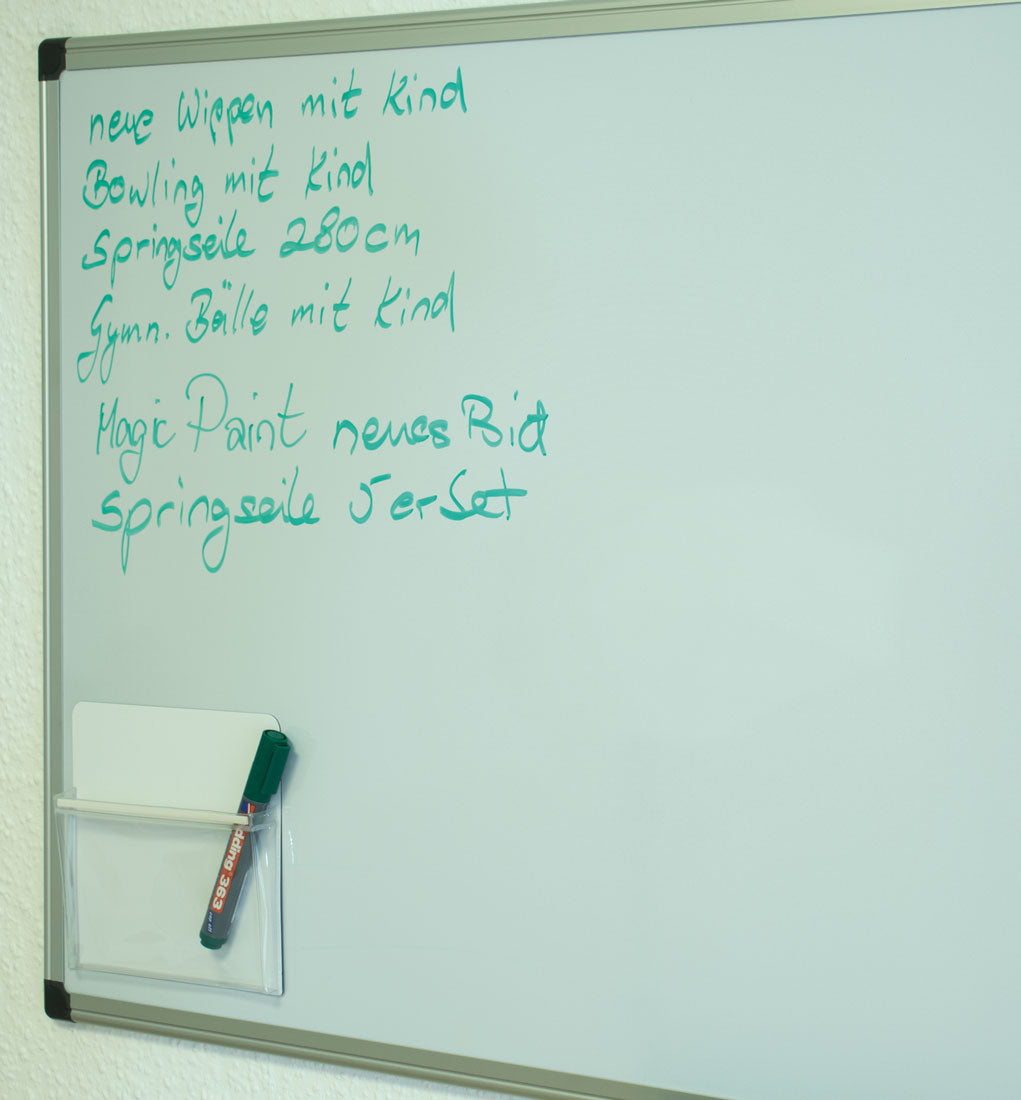 neue Wippen mit Kind
Bowling mit Kind
Springseile 280cm
Gymn. Bälle mit Kind
Magic Paint neues Bild
Springseile 5er Set
edding 363